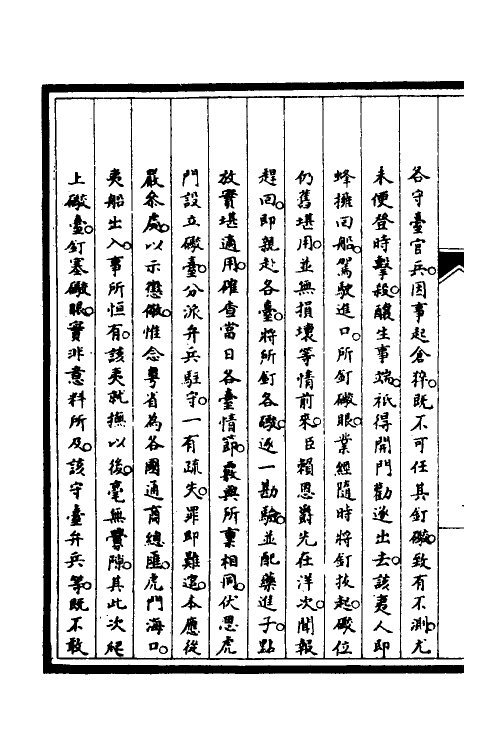 各守臺官兵因事起倉猝旣不可任其釘礮致有不測尤
未便登時擊殺釀生事端祇得開門勸逐出去該夷人卽
蜂擁回船駕駛進口所釘礮眼業經隨時將釘拔起礮位
仍舊堪用並無損壞等情前來臣賴恩爵先在洋次聞報
趕回卽親赴各臺將所釘各礮逐一勘驗並配藥進子點
放實堪適用確查當日各臺情節覈與所稟相同伏思虎
門設立礮臺分派弁兵駐守一有疏失罪卽難逭本應從
嚴叅處以示懲儆惟念粵省為各國通商總匯虎門海口
夷船出入事所恒有該夷就撫以後毫無釁隙其此次爬
上礮臺釘塞礮眼實非意料所及該守臺弁兵等旣不敢